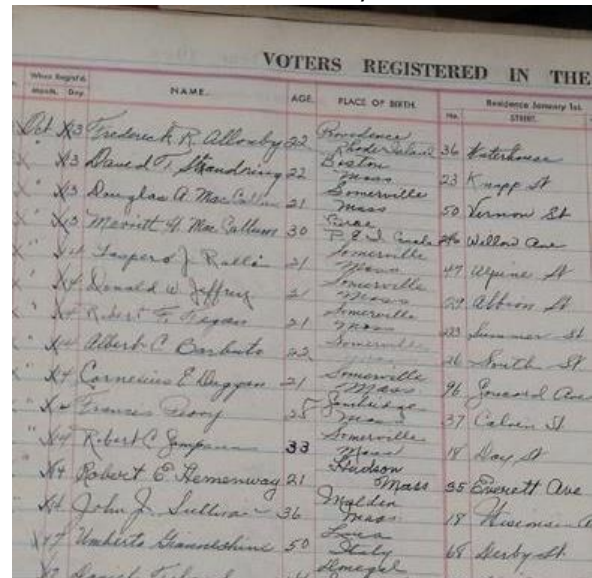 VOTERS REGISTERED IN THE
When Regist'd. Residence January 1st.
Month. Day NAME. AGE. PLACE OF BIRTH. No. STREET.
Oct X3 Frederick R. Allonby 22 Providence Rhode Island 36 Waterhouse
" X3 David T. Standring 22 Boston Mass 23 Knapp St
" X3 Douglas A MacCallum 21 Somerville Mass 50 Vernon St
" X3 Merritt MacCallum 30 P. E. I. Canada Willow Ave
" X4 Gaspero J. 21 Somerville Mass 47 Alpine St
" X4 Donald W. Jeffrey 21 Somerville Mass 29 Albion St
" X4 Robert F. 21 Somerville Mass Summer St
" X4 Albert C. Barbuto 22 Somerville 26 North St
" X4 Cornelius E Duggan 21 Somerville Mass 96 Concord Ave
" X4 Francis Cambridge Mass 37 Calvin St
" X4 Robert C. 33 Somerville Mass 18 Day St
" X4 Robert E. Hemenway 21 Hudson Mass 35 Everett Ave
" X4 John J. Sullivan 36 Malden Mass 18 Wisconsin
Umberto 50 Italy 68 Derby St